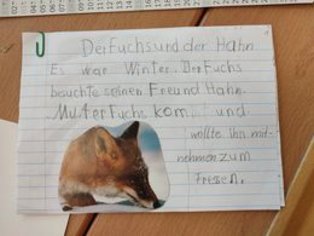 Der Fuchs und der Hahn
Es war Winter. Der Fuchs
besuchte seinen Freund Hahn.
Muter Fuchs kom und
wollte ihn mit-
nehmen zum
Fresen.